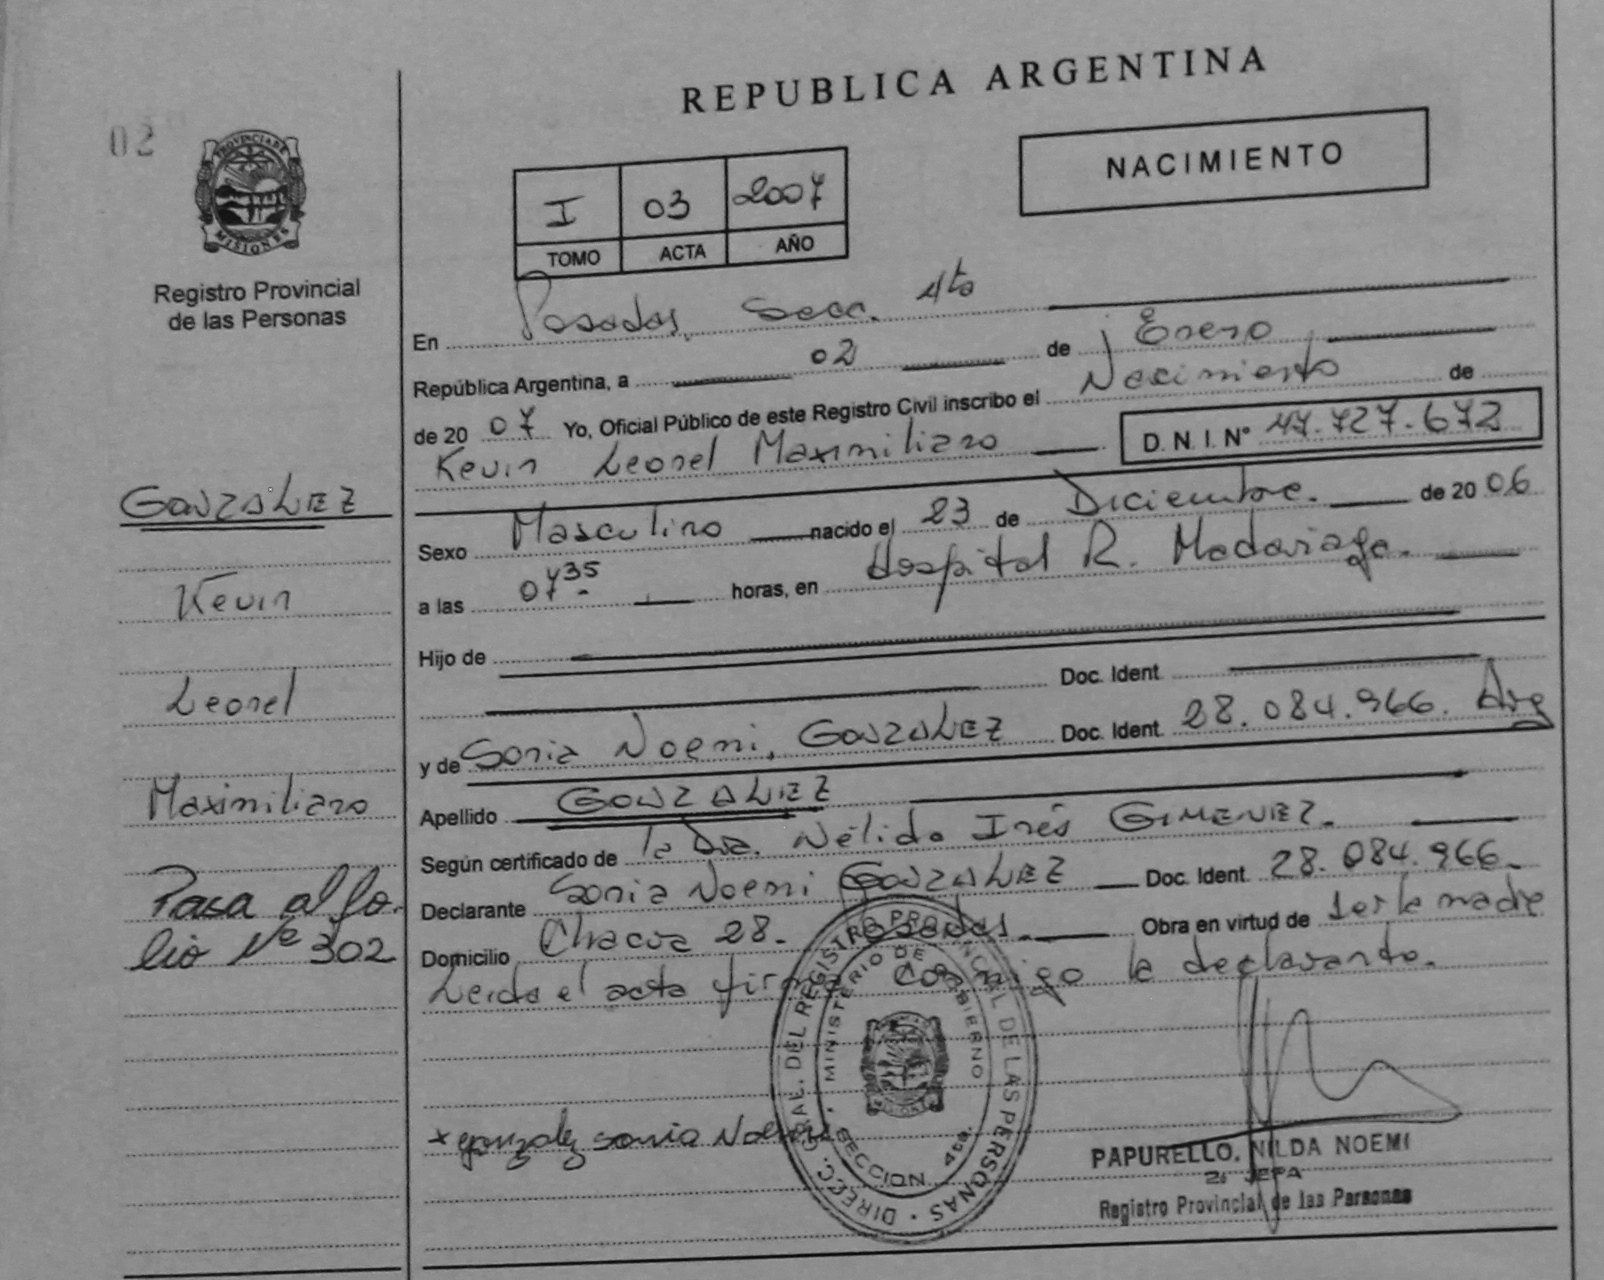 REPUBLICA ARGENTINA
02
PROVINCIA DE
MISIONES
Registro Provincial
de las Personas
NACIMIENTO
I 03 2007
TOMO ACTA AÑO
En Posadas, Secc. 4ta
República Argentina, a 02 de Enero
de 20 07 Yo, Oficial Público de este Registro Civil inscribo el Nacimiento de
Kevin Leonel Maximiliano D.N.I. N° 47.727.672
Sexo Masculino nacido el 23 de Diciembre. de 20 06
a las 07 35 horas, en Hospital R. Madariaga.
Hijo de
Doc. Ident.
y de Sonia Noemi, GONZALEZ Doc. Ident. 28.084.966. Arg
Apellido GONZALEZ
Según certificado de la Dra. Nélida Inés GIMENEZ.
Declarante Sonia Noemi GONZALEZ Doc. Ident. 28.084.966.
Domicilio Chacra 28. Posadas. Obra en virtud de ser la madre
Leida el acta firma conmigo la declarante.
GONZALEZ
Kevin
Leonel
Maximiliano
Pasa al fo.
lio Nº 302
x gonzalez sonia Noemi
DIRECC. GRAL. DEL REGISTRO PROVINCIAL DE LAS PERSONAS
MINISTERIO DE GOBIERNO
SECCION 4ta.
PAPURELLO, NILDA NOEMI
2a JEFA
Registro Provincial de las Personas